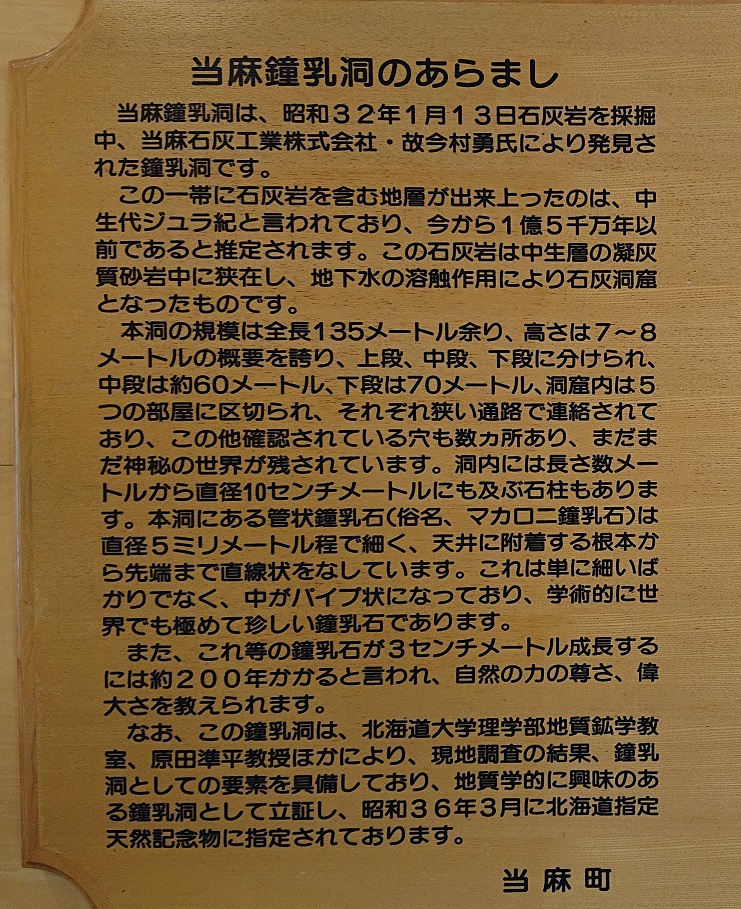 当麻鐘乳洞のあらまし
当麻鐘乳洞は、昭和３２年１月１３日石灰岩を採掘
中、当麻石灰工業株式会社・故今村勇氏により発見さ
れた鐘乳洞です。
この一帯に石灰岩を含む地層が出来上ったのは、中
生代ジュラ紀と言われており、今から１億５千万年以
前であると推定されます。この石灰岩は中生層の凝灰
質砂岩中に狭在し、地下水の溶触作用により石灰洞窟
となったものです。
本洞の規模は全長135メートル余り、高さは７〜８
メートルの概要を誇り、上段、中段、下段に分けられ、
中段は約60メートル、下段は70メートル、洞窟内は５
つの部屋に区切られ、それぞれ狭い通路で連絡されて
おり、この他確認されている穴も数ヵ所あり、まだま
だ神秘の世界が残されています。洞内には長さ数メー
トルから直径10センチメートルにも及ぶ石柱もありま
す。本洞にある管状鐘乳石(俗名、マカロニ鐘乳石)は
直径５ミリメートル程で細く、天井に附着する根本か
ら先端まで直線状をなしています。これは単に細いば
かりでなく、中がパイプ状になっており、学術的に世
界でも極めて珍しい鐘乳石であります。
また、これ等の鐘乳石が３センチメートル成長する
には約２００年かかると言われ、自然の力の尊さ、偉
大さを教えられます。
なお、この鐘乳洞は、北海道大学理学部地質鉱学教
室、原田準平教授ほかにより、現地調査の結果、鐘乳
洞としての要素を具備しており、地質学的に興味のあ
る鐘乳洞として立証し、昭和３６年３月に北海道指定
天然記念物に指定されております。
当麻町